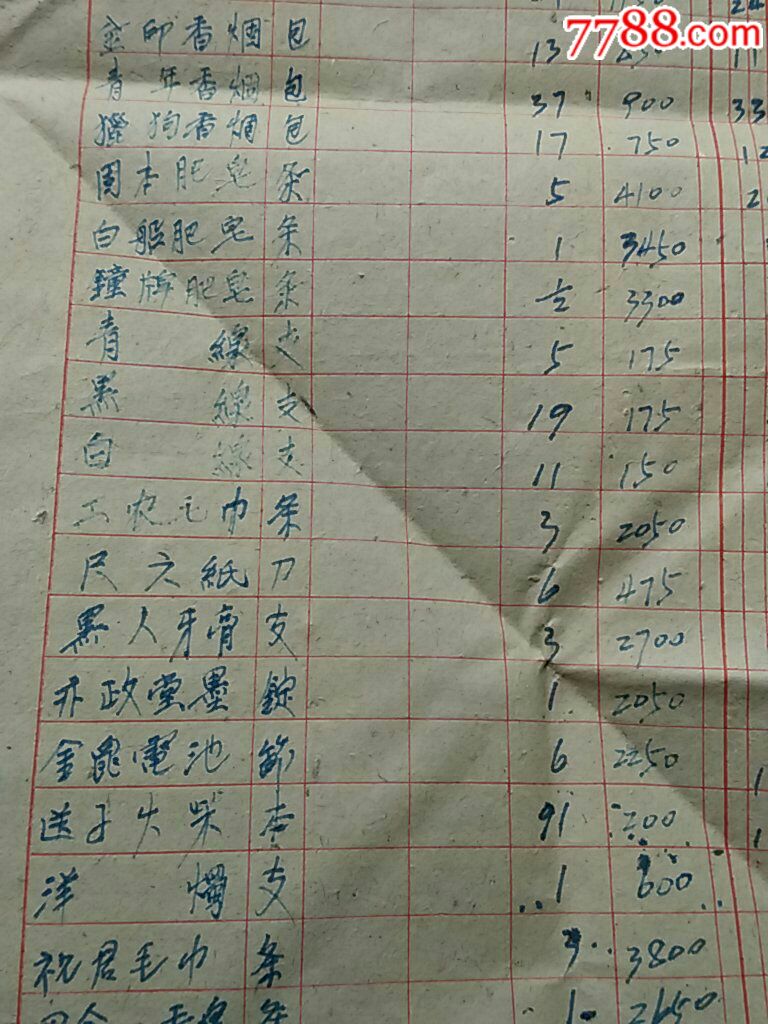 7788.com
金印香烟 包 13
青年香烟 包 37 900 33
獵狗香烟 包 17 750 12
固本肥皂 条 5 4100
白船肥皂 条 1 3450
鐘牌肥皂 条 ½ 3300
青線 支 5 175
黑線 支 19 175
白線 支 11 150
工农毛巾 条 3 2050
尺六紙 刀 6 475
黑人牙膏 支 3 2700
亦政堂墨 錠 1 2050
金鼠電池 節 6 2250
送子火柴 91 200
洋燭 支 1 600
祝君毛巾 条 3 3800
1 2650